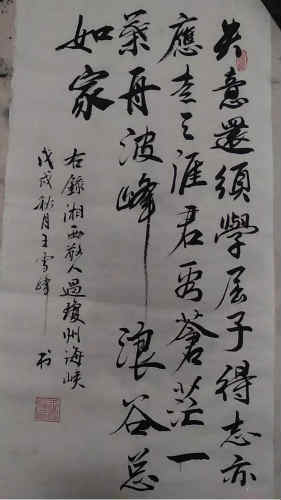 失意還須學屈子得志亦
應走天涯君看蒼茫一
葉舟波峰浪谷總
如家
右錄湘西散人過瓊州海峽
戊戌秋月王雪峰书